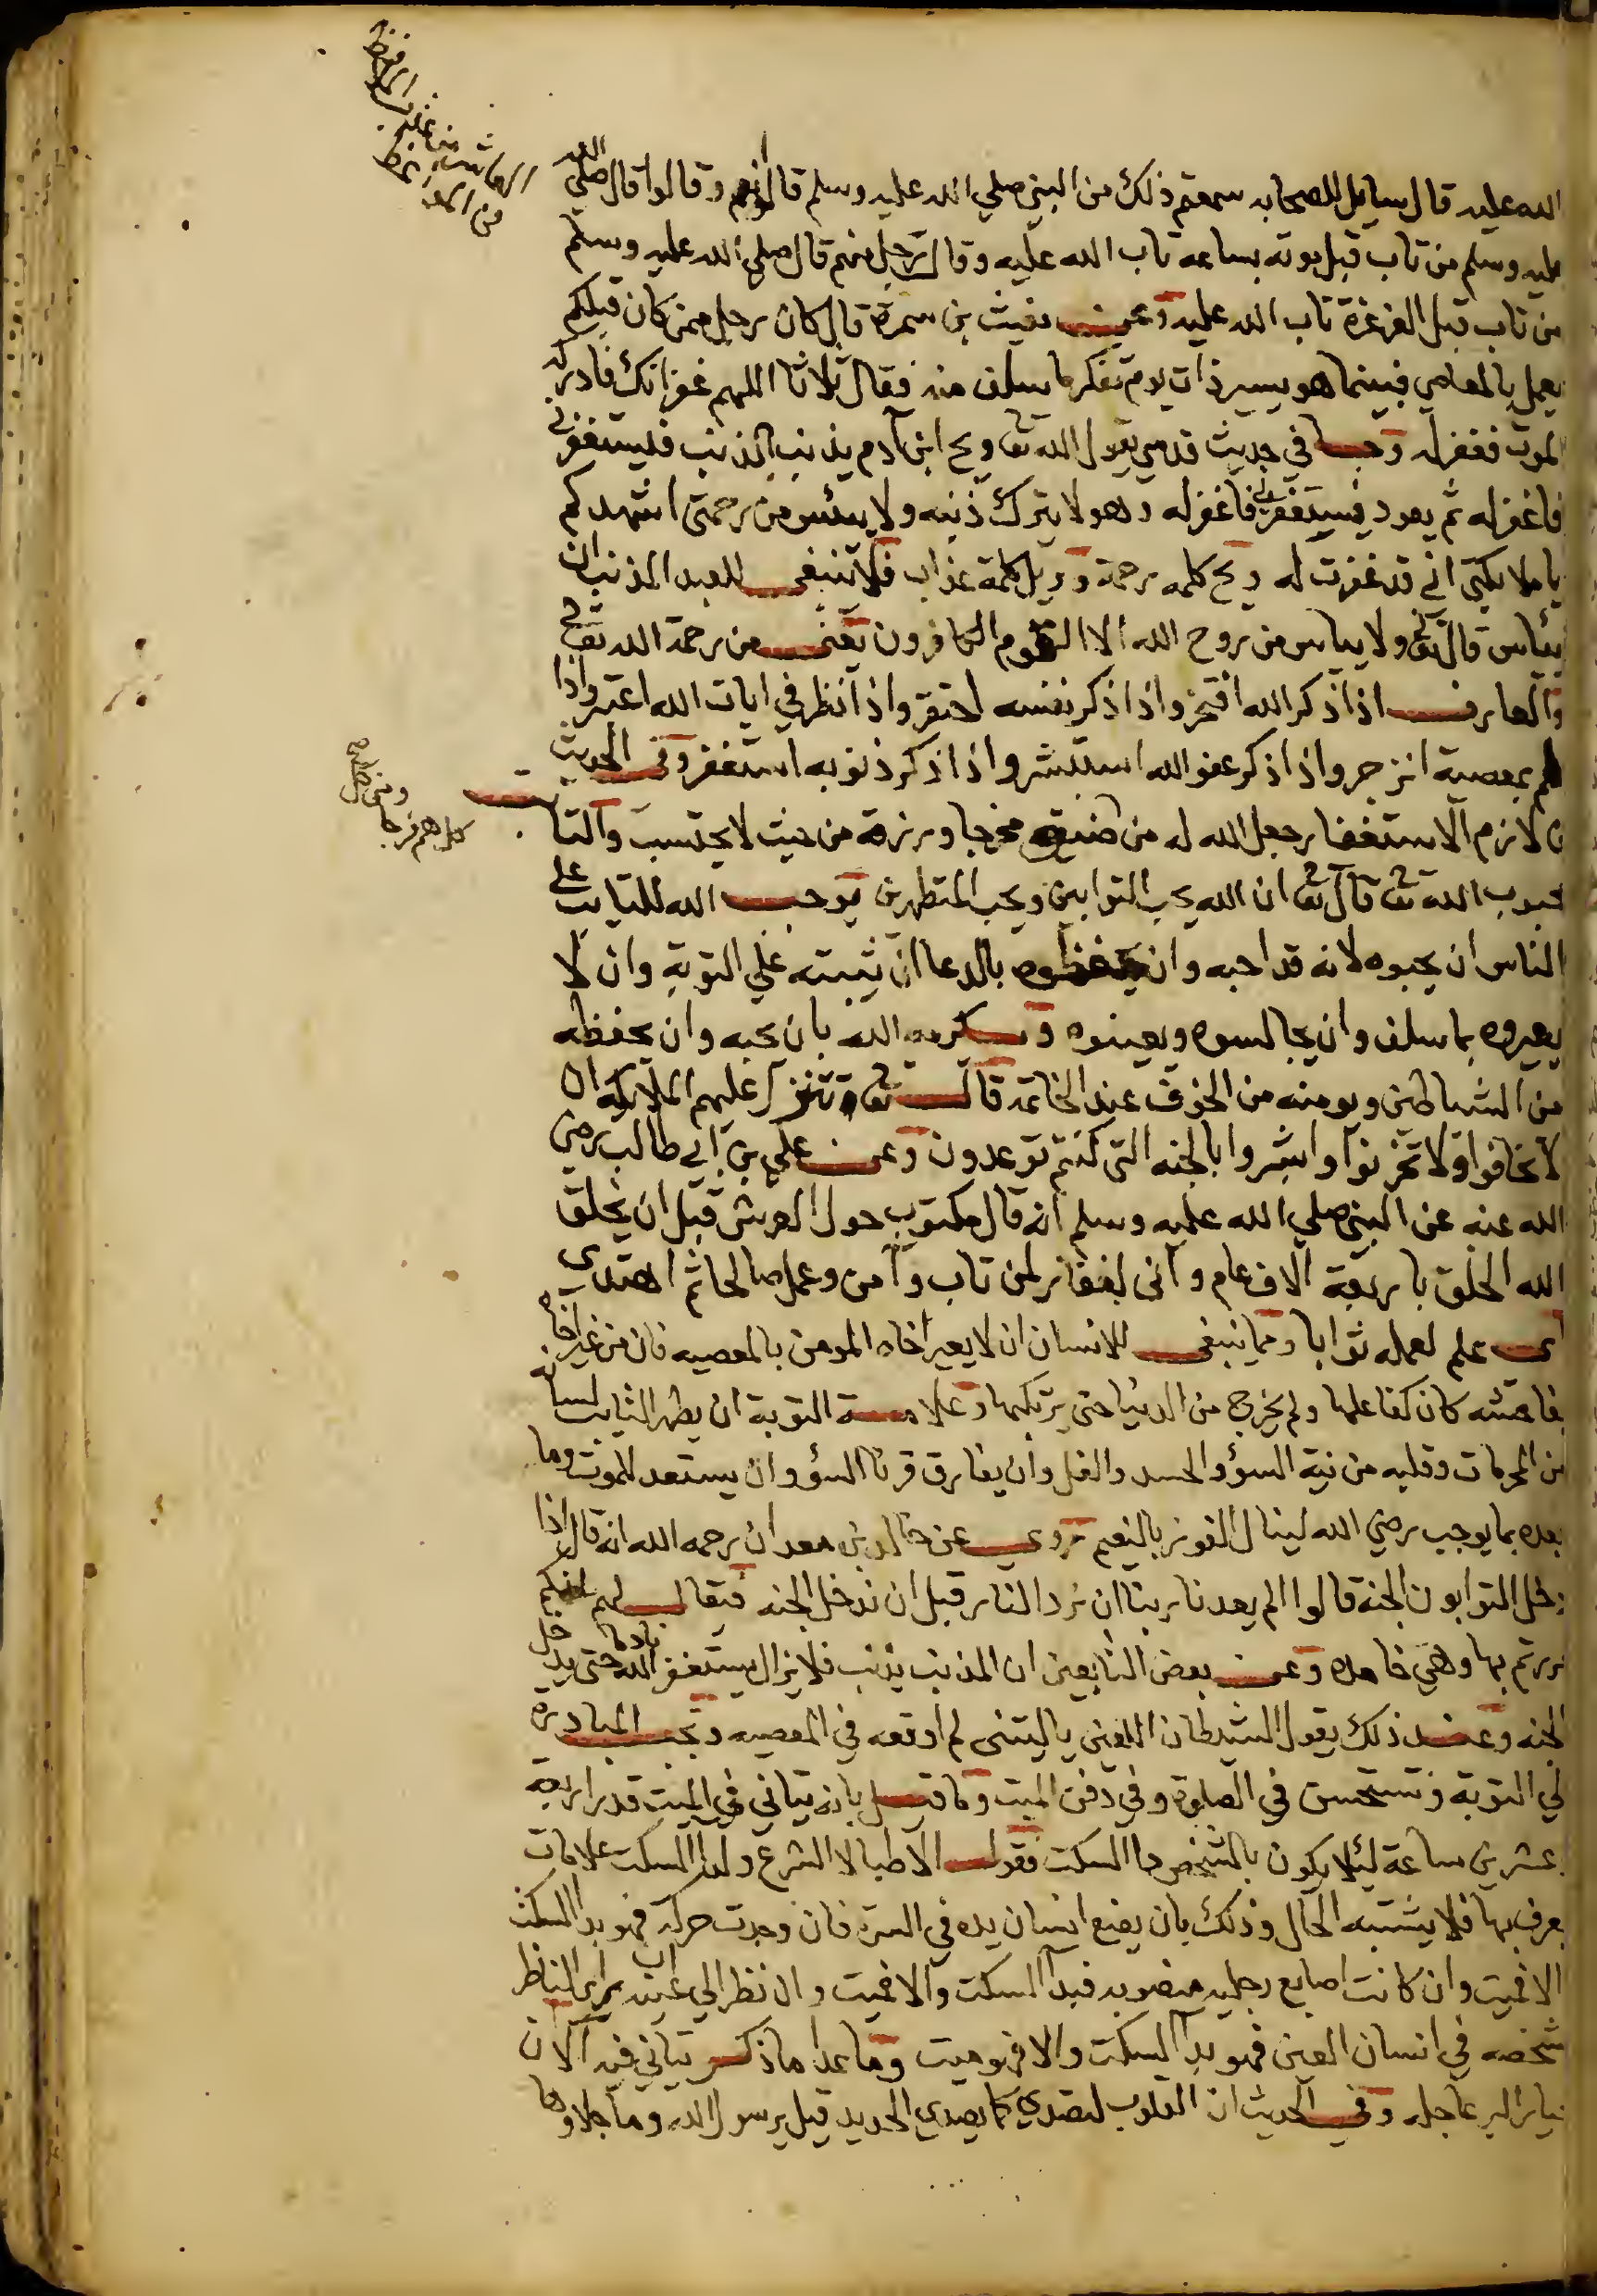 الله عليه قال سايل للصحابه سمعتم ذلك من النبي صلي الله عليه وسلم قالوا نعم وقالوا قال صلي الله
عليه وسلم من تاب قبل موته بساعه تاب الله عليه وقال رجل منهم قال صلي الله عليه وسلم
من تاب قبل الغرغرة تاب الله عليه وعن مغيث بن سمرة قال كان رجل ممن كان قبلكم
يعمل بالمعاصي فبينما هو يسير ذات يوم تفكر ما سلف منه فقال ثلاثا اللهم غفرانك فادركه
الموت فغفر له وجا في حديث قدسي يقول الله تعا ويح ابن ادم يذنب الذنب فليستغفرني
فاغفر له ثم يعود فيستغفرني فاغفر له وهو لا يترك ذنبه ولا ييئس من رحمتي اشهدكم
يا ملايكتي اني قد غفرت له ويح كلمه رحمة وويل كلمة عذاب فلا ينبغي للعبد المذنب ان
ييأس قال تعا ولا يياس من روح الله الا القوم الكافرون يعني من رحمة الله تعا
والعارف اذا ذكر الله افتخر واذا ذكر نفسه احتقر واذا نظر في ايات الله اعتبر واذا
هم بمعصية انزجر واذا ذكر عفو الله استبشر واذا ذكر ذنوبه استغفر وفي الحديث
من لازم الاستغفار جعل الله له من ضيقه مخرجا ورزقه من حيث لا يحتسب والتايب
محبوب الله تعا قال تعا ان الله يحب التوابين ويحب المتطهرين يوجب الله للتايب علي
الناس ان يحبوه لانه قد احبه وان يحفظوه بالدعا ان يثبته علي التوبة وان لا
يعيروه بما سلف وان يجالسوه ويعينوه ويكرمه الله بان يحبه وان يحفظه
من الشياطين ويومنه من الخوف عند الخاتمة قال تعا تتنزل عليهم الملايكه ان
لا تخافوا ولا تحزنوا وابشروا بالجنه التي كنتم توعدون وعن علي بن ابي طالب رضي
الله عنه عن النبي صلي الله عليه وسلم انه قال مكتوب حول العرش قبل ان يخلق
الله الخلق باربعة الاف عام واني لغفار لمن تاب وآمن وعمل صالحا ثم اهتدي
اي علم لعمله ثوابا ومما ينبغي للانسان ان لا يعير اخاه المومن بالمعصيه فان من عير اخاه
بفاحشه كان كفاعلها ولم يخرج من الدنيا حتي يرتكبها وعلامة التوبة ان يطهر التايب لسانه
من المحرمات وقلبه من نية السؤ والحسد والغل وان يفارق قرنا السؤ وان يستعد للموت وما
بعده بما يوجب رضي الله لينال الفوز بالنعيم روي عن خالد بن معدان رحمه الله انه قال اذا
دخل التوابون الجنة قالوا الم يعدنا ربنا ان نرد النار قبل ان ندخل الجنه فيقال لهم انكم
مررتم بها وهي خامده وعن بعض التابعين ان المذنب يذنب فلا يزال يستغفر الله نادما حتي يدخل
الجنه وعند ذلك يقول الشيطان اللعين يا ليتني لم اوقعه في المعصيه وتجب المبادره
الي التوبة وتستحسن في الصلوة وفي دفن الميت وما قيل بانه يتاني في الميت قدر اربعة
وعشرين ساعة ليلا يكون بالشخص دا السكت فقول الاطبا لا الشرع ولدا السكت علامات
يعرف بها فلا يشتبه الحال وذلك بان يضع انسان يده في السرة فان وجدت حركه فهو بدا السكت
والا فميت وان كانت اصابع رجليه منصوبه فبدا السكت والا فميت وان نظر الي عينيه يري الناظر
شخصه في انسان العين فهو بدا السكت والا فهو ميت وما عدا ما ذكر يتاني فيه الا ان
خيار البر عاجله وفي الحديث ان القلوب لتصدي كما يصدي الحديد قيل يرسول الله وما جلاوها
ومن كل
هم فرجا